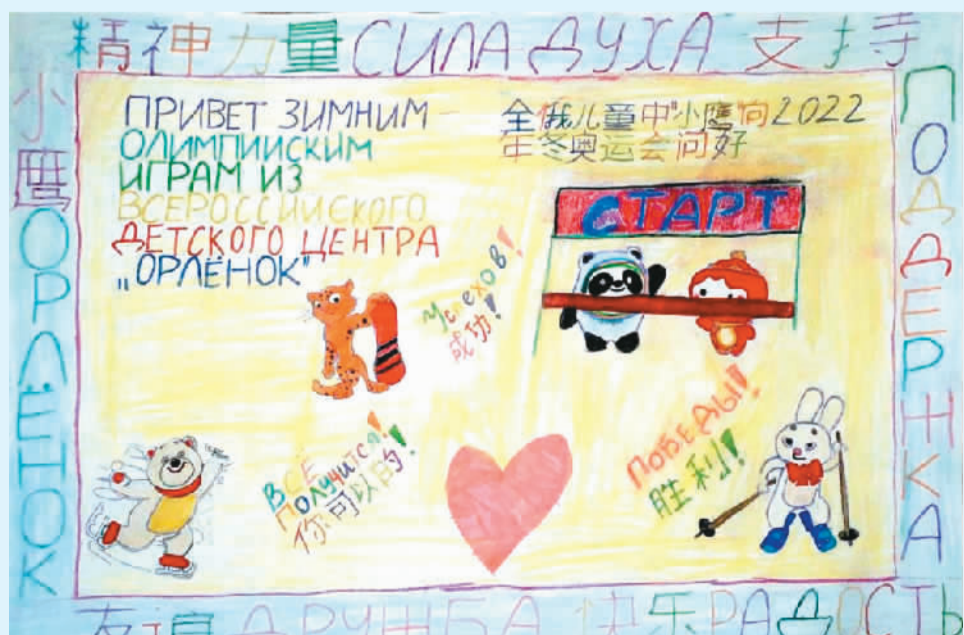 精神力量 СИЛА ДУХА 支持
小鹰 ОРЛЁНОК
ПРИВЕТ ЗИМНИМ
ОЛИМПИИСКИМ
ИГРАМ ИЗ
ВСЕРОССИИСКОГО
ДЕТСКОГО ЦЕНТРА
„ОРЛЁНОК"
全俄儿童中"小鹰"向2022
年冬奥运会问好
СТАРТ
Успехов!
成功!
ВСЁ
ПОЛУЧИТСЯ!
你可以的!
ПОБЕДЫ!
胜利!
ПОДДЕРЖКА
友谊 ДРУЖБА 快乐 РАДОСТЬ